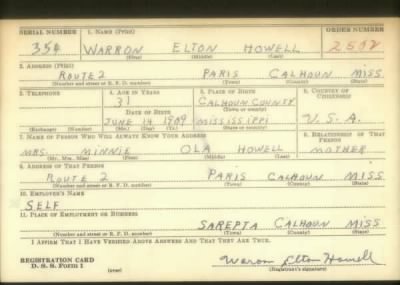 SERIAL NUMBER 1. NAME (Print) ORDER NUMBER
354 WARRON ELTON HOWELL 2502
(First) (Middle) (Last)
2. ADDRESS (Print)
ROUTE 2 PARIS CALHOUN MISS
(Number and street or R. F. D. number) (Town) (County) (State)
3. TELEPHONE 4. AGE IN YEARS 5. PLACE OF BIRTH 6. COUNTRY OF CITIZENSHIP
31 CALHOUN COUNTY
DATE OF BIRTH (Town or county)
JUNE 14 1909 MISSISSIPPI U.S.A.
(Exchange) (Number) (Mo.) (Day) (Yr.) (State or country)
7. NAME OF PERSON WHO WILL ALWAYS KNOW YOUR ADDRESS 8. RELATIONSHIP OF THAT PERSON
MRS. MINNIE OLA HOWELL MOTHER
(Mr., Mrs., Miss) (First) (Middle) (Last)
9. ADDRESS OF THAT PERSON
ROUTE 2 PARIS CALHOUN MISS.
(Number and street or R. F. D. number) (Town) (County) (State)
10. EMPLOYER'S NAME
SELF
11. PLACE OF EMPLOYMENT OR BUSINESS
SAREPTA CALHOUN MISS.
(Number and street or R. F. D. number) (Town) (County) (State)
I AFFIRM THAT I HAVE VERIFIED ABOVE ANSWERS AND THAT THEY ARE TRUE.
REGISTRATION CARD
D. S. S. Form 1 (over) Warron Elton Howell
(Registrant's signature)